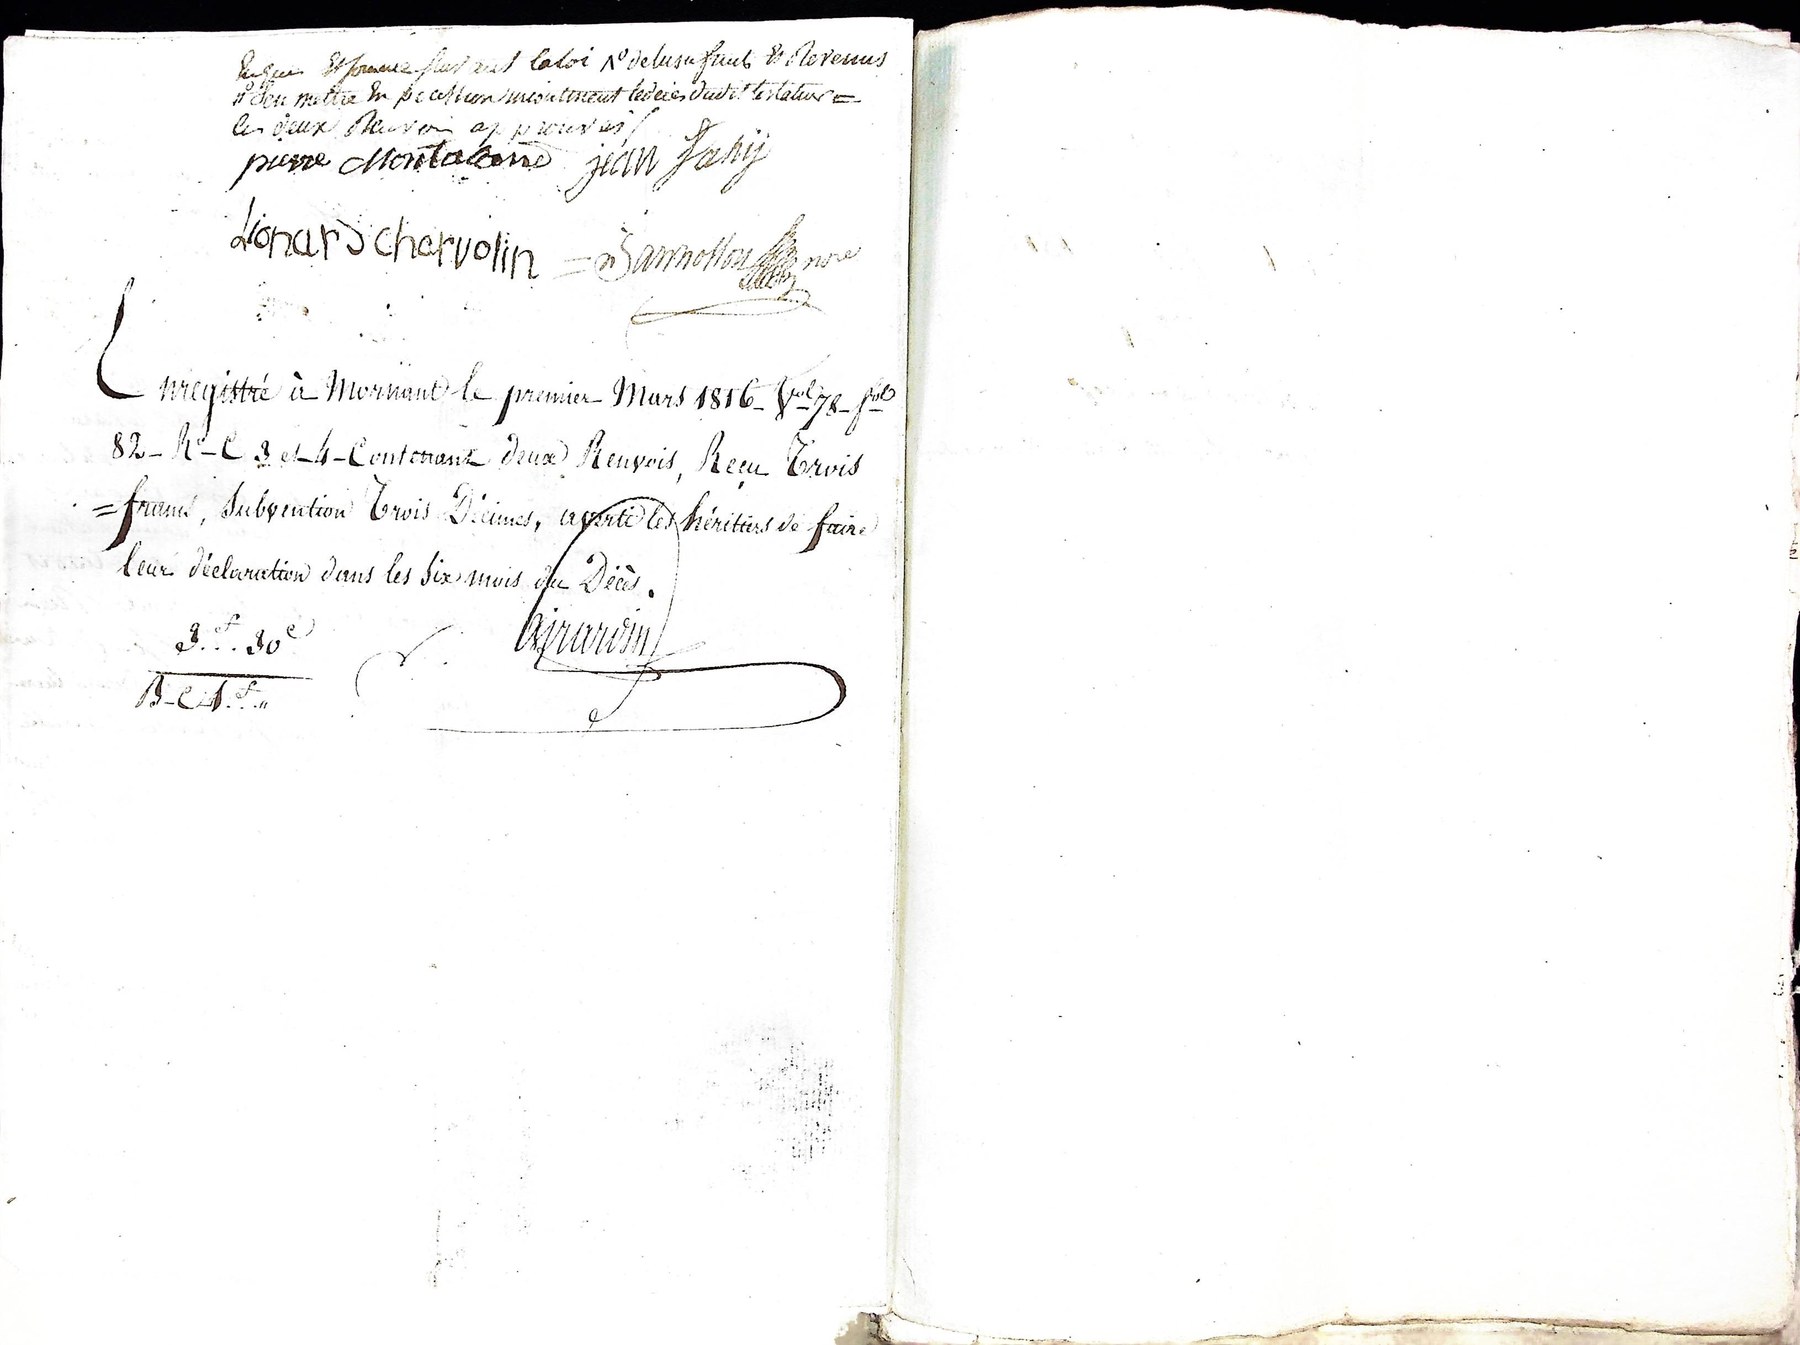 requis et sommé suivant la loi No de l'usufruit & Revenus
No d'en mettre En pocession incontinent le décès dudit testateur =
les deux Renvoi approuvés
pierre Montaland jéan Fahÿ
Lionard chervolin = nore
Enregistré à Mornant le premier Mars 1816 - Vol 78 - fol
82 - Ro - C 3 et 4 - Contenant deux Renvois, Reçu Trois
= francs, Subvention Trois Décimes, averti les héritiers de faire
leur déclaration dans les Six mois du Décès.
3.f. 30c
Girardin
B - C 1.f. "